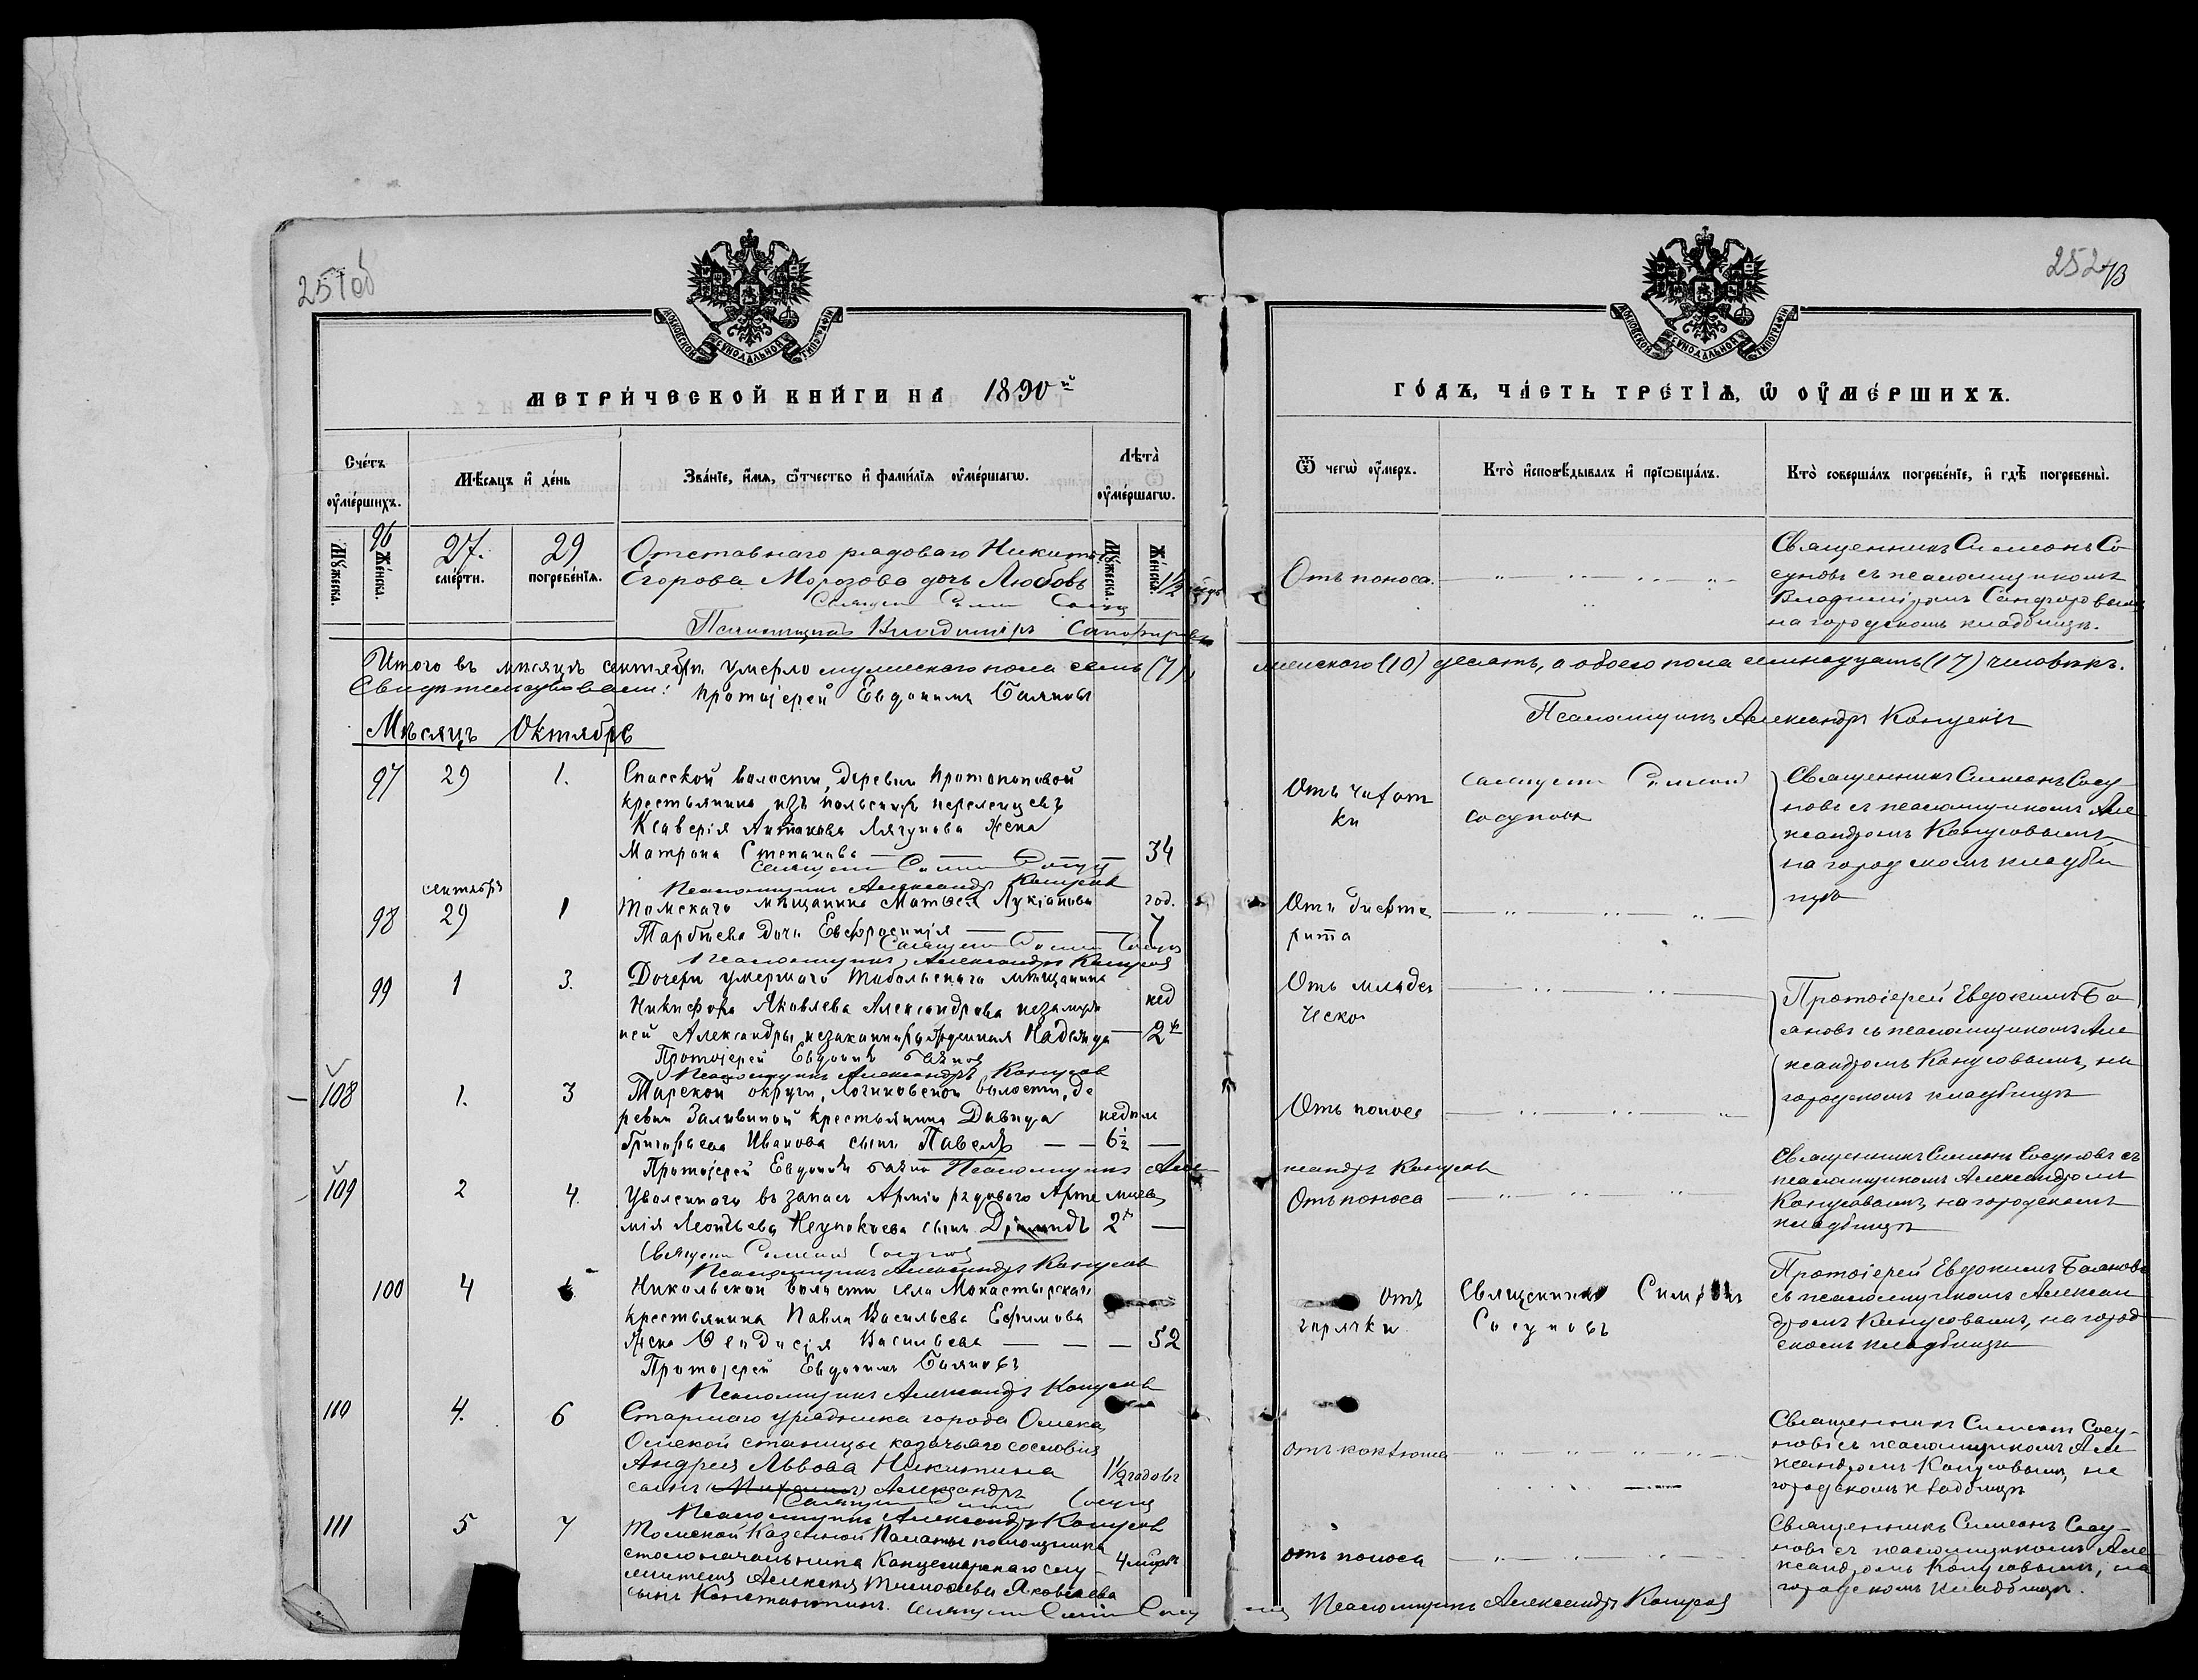 251об
МОСКОВСКОЙ СУНОДАЛЬНОЙ ТИПОГРАФІИ
МЕТРИ́ЧЕСКОЙ КНИ́ГИ НА 1890й
Счéтъ оу҆мéршихъ.
Мѣ́сяцъ и҆ дéнь
Звáнїе, и҆́мя, ѻ҆́тчество и҆ фами́лїя оу҆мéршагѡ.
Лѣ́та оу҆мéршагѡ.
Мꙋ́жеска.
Жéнска.
смéрти.
погребéнїя.
Мꙋ́жеска.
Жéнска.
96 27. 29 Отставнаго рядоваго Никиты
Егорова Морозова дочь Любовь 1/2
Псаломщикъ Владимiръ
Итого въ мѣсяцѣ сентябрѣ умерло мужескаго пола семь (7),
Свидѣтельствовали: Протоіерей Евдокимъ Баяновъ
Мѣсяцъ Октябрь
97 29 1. Спасской волости, деревни Протопоповой
крестьянина изъ польскихъ переселенцевъ
Ксаверія Антонова Лягунова жена
Матрона Степанова — — — — 34
Псаломщикъ Александръ Конусов
сентябрь
98 29 1 Томскаго мѣщанина Матвея Лукіанова год.
дочь Евфросинія — — — 7
Псаломщикъ Александръ Конусов
99 1 3. Дочери умершаго Тобольскаго мѣщанина
Никифора Яковлева Александрова незамуж нед
ней Александры незаконнорожденная Надежда — 2
Протоіерей Евдокимъ Баянов
Псаломщикъ Александръ Конусов
108 1. 3 Тарской округи, Логиновской волости, де
ревни Заливиной крестьянина Давида недѣли
Григорьева Иванова сынъ Павелъ — — 6 1/2 —
Протоіерей Евдокимъ Баянов Псаломщикъ Але
109 2 4. Уволеннаго въ запасъ Арміи рядового Арте мѣсяц.
мія Леонтьева Неупокоева сынъ 2 —
Псаломщикъ Александръ Конусов
100 4 Никольской волости села Монастырскаго
крестьянина Павла Васильева Ефимова
жена Феодосія Васильева — — — 52
Протоіерей Евдокимъ Баяновъ
Псаломщикъ Александръ Конусов
110 4. 6 Старшаго урядника города Омска,
Омской станицы казачьяго сословія
Андрея Львова Никитина 1 1/2 годовъ
сынъ Александръ
Псаломщикъ Александръ Конусов
111 5 7 Томской Казенной Палаты помощника
столоначальника Канцелярскаго слу
жителя Алексея Тимофеева Яковлева
сынъ Константинъ.
252
МОСКОВСКОЙ СУНОДАЛЬНОЙ ТИПОГРАФІИ
ГО́ДЪ, ЧА́СТЬ ТРЕТІѦ, Ѡ҆ ОУ҆МЕ́РШИХЪ.
Ѿ чегѡ̀ оу҆́меръ.
Ктò и҆сповѣ́дывалъ и҆ прїѡбщáлъ.
Ктò совершáлъ погребéнїе, и҆ гдѣ̀ погребены̀.
Отъ поноса.
Священникъ Симеонъ Со
суновъ съ псаломщикомъ
Владиміромъ
на городскомъ кладбищѣ.
женскаго (10) десять, а обоего пола семнадцать (17) человѣкъ.
Псаломщикъ Александръ Конусовъ
Отъ чахот
ки
Сосуновъ
Священникъ Симеонъ Сосу-
новъ съ псаломщикомъ Але
ксандромъ Конусовымъ
на городскомъ кладби
щѣ
Отъ дифте
рита
Отъ младен
ческо
Протоіерей Евдокимъ Ба
яновъ съ псаломщикомъ Але
ксандромъ Конусовымъ, на
городскомъ кладбищѣ
Отъ поноса
ксандръ Конусов
Отъ поноса
Священникъ Симеонъ Сосуновъ съ
псаломщикомъ Александромъ
Конусовымъ, на городскомъ
кладбищѣ
Отъ
горячки
Священникъ Симеонъ
Сосуновъ
Протоіерей Евдокимъ Баяновъ
съ псаломщикомъ Алексан
дромъ Конусовымъ, на город
скомъ кладбищѣ
отъ коклюша
Священникъ Симеонъ Сосу-
новъ съ псаломщикомъ Але
ксандромъ Конусовымъ, на
городскомъ кладбищѣ
отъ поноса
Священникъ Симеонъ Сосу-
новъ съ псаломщикомъ Але
ксандромъ Конусовымъ, на
городскомъ кладбищѣ.
Псаломщикъ Александръ Конусов